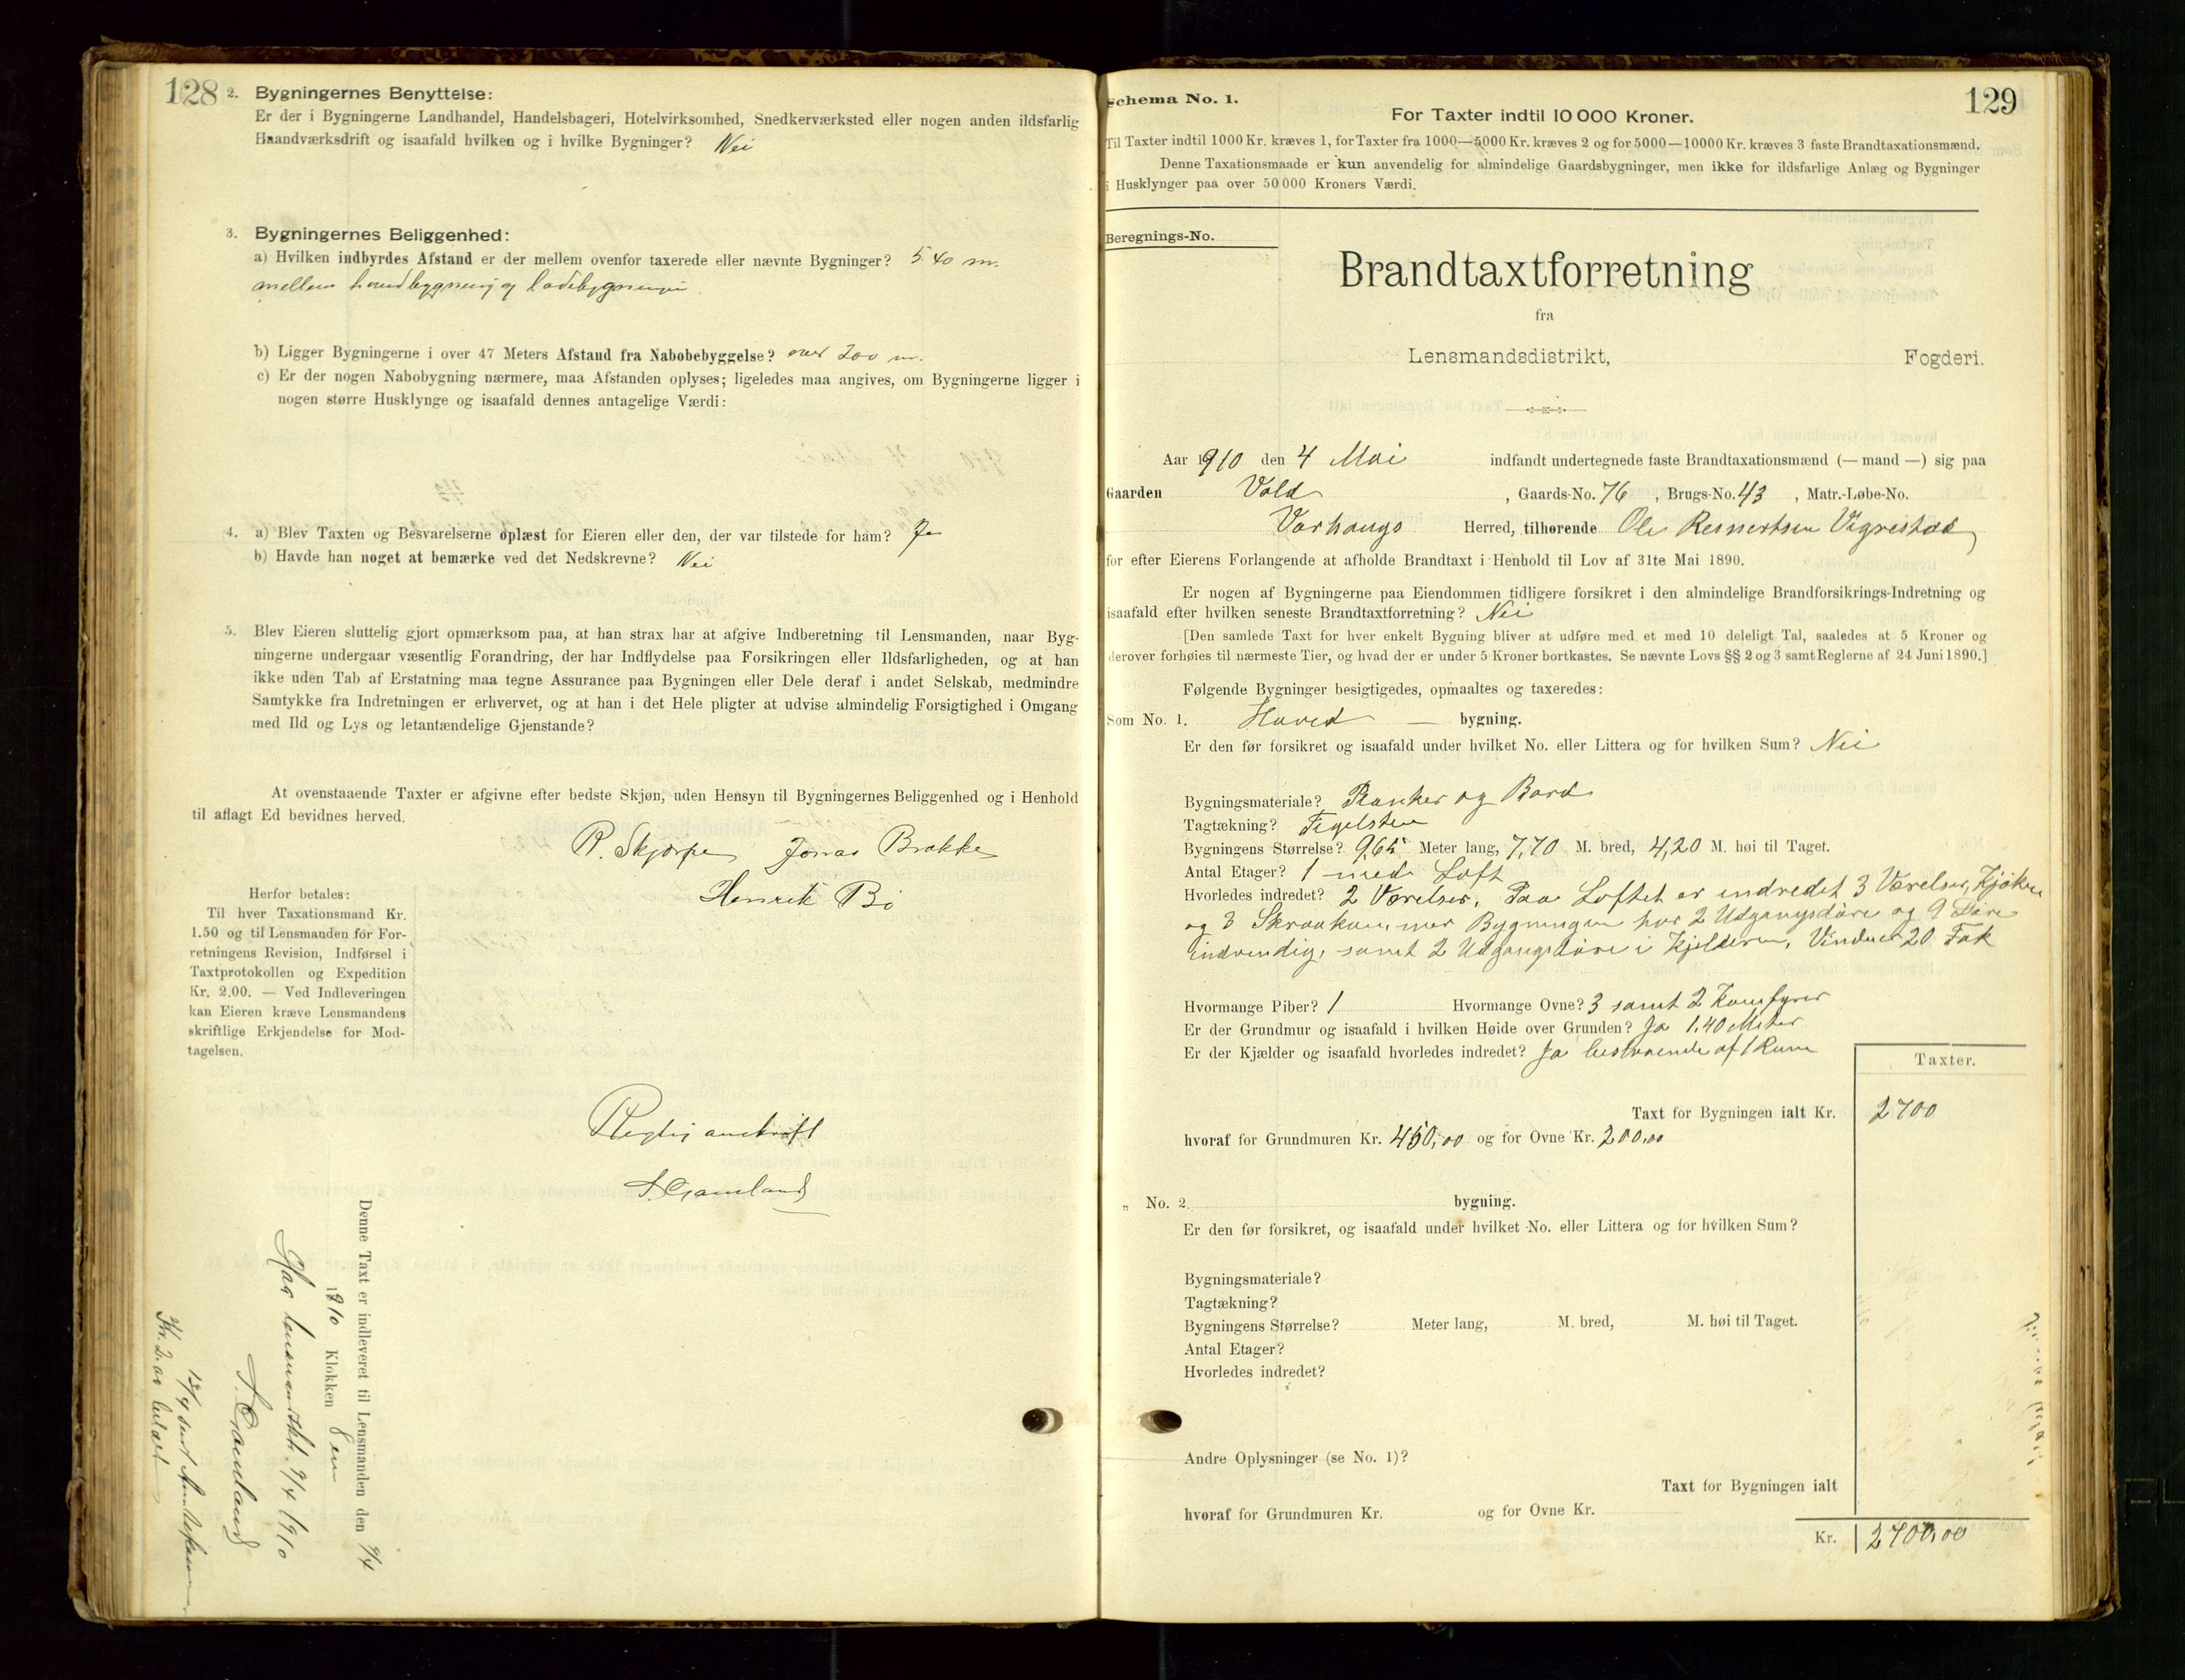 128
2. Bygningernes Benyttelse:
Er der i Bygningerne Landhandel, Handelsbageri, Hotelvirksomhed, Snedkerværksted eller nogen anden ildsfarlig
Haandværksdrift og isaafald hvilken og i hvilke Bygninger? Nei
3. Bygningernes Beliggenhed:
a) Hvilken indbyrdes Afstand er der mellem ovenfor taxerede eller nævnte Bygninger? 5.40 m.
mellem
b) Ligger Bygningerne i over 47 Meters Afstand fra Nabobebyggelse? over 200 m.
c) Er der nogen Nabobygning nærmere, maa Afstanden oplyses; ligeledes maa angives, om Bygningerne ligger i
nogen større Husklynge og isaafald dennes antagelige Værdi:
4. a) Blev Taxten og Besvarelserne oplæst for Eieren eller den, der var tilstede for ham? Ja
b) Havde han noget at bemærke ved det Nedskrevne? Nei
5. Blev Eieren sluttelig gjort opmærksom paa, at han strax har at afgive Indberetning til Lensmanden, naar Byg-
ningerne undergaar væsentlig Forandring, der har Indflydelse paa Forsikringen eller Ildsfarligheden, og at han
ikke uden Tab af Erstatning maa tegne Assurance paa Bygningen eller Dele deraf i andet Selskab, medmindre
Samtykke fra Indretningen er erhvervet, og at han i det Hele pligter at udvise almindelig Forsigtighed i Omgang
med Ild og Lys og letantændelige Gjenstande?
At ovenstaaende Taxter er afgivne efter bedste Skjøn, uden Hensyn til Bygningernes Beliggenhed og i Henhold
til aflagt Ed bevidnes herved.
R. Skjærpe Jonas Brække
Henrik Bø
Herfor betales:
Til hver Taxationsmand Kr.
1.50 og til Lensmanden for For-
retningens Revision, Indførsel i
Taxtprotokollen og Expedition
Kr. 2.00. — Ved Indleveringen
kan Eieren kræve Lensmandens
skriftlige Erkjendelse for Mod-
tagelsen.
Rigtig
Denne Taxt er indleveret til Lensmanden den 9/4
1910 Klokken
9/4 1910
Kr. 2.00
129
Schema No. 1.
For Taxter indtil 10 000 Kroner.
Til Taxter indtil 1000 Kr. kræves 1, for Taxter fra 1000—5000 Kr. kræves 2 og for 5000—10000 Kr. kræves 3 faste Brandtaxationsmænd.
Denne Taxationsmaade er kun anvendelig for almindelige Gaardsbygninger, men ikke for ildsfarlige Anlæg og Bygninger
i Husklynger paa over 50 000 Kroners Værdi.
Beregnings-No.
Brandtaxtforretning
fra
Lensmandsdistrikt, Fogderi.
Aar 1910 den 4 Mai indfandt undertegnede faste Brandtaxationsmænd (— mand —) sig paa
Gaarden Vold, Gaards-No. 76, Brugs-No. 43, Matr.-Løbe-No.
Varhaugs Herred, tilhørende Ole Reinertsen Vigrestad
for efter Eierens Forlangende at afholde Brandtaxt i Henhold til Lov af 31te Mai 1890.
Er nogen af Bygningerne paa Eiendommen tidligere forsikret i den almindelige Brandforsikrings-Indretning og
isaafald efter hvilken seneste Brandtaxtforretning? Nei
[Den samlede Taxt for hver enkelt Bygning bliver at udføre med et med 10 deleligt Tal, saaledes at 5 Kroner og
derover forhøies til nærmeste Tier, og hvad der er under 5 Kroner bortkastes. Se nævnte Lovs §§ 2 og 3 samt Reglerne af 24 Juni 1890.]
Følgende Bygninger besigtigedes, opmaaltes og taxeredes:
Som No. 1. Hoved — bygning.
Er den før forsikret og isaafald under hvilket No. eller Littera og for hvilken Sum? Nei
Bygningsmateriale? Planker og Bord
Tagtækning? Tegelsten
Bygningens Størrelse? 9,65 Meter lang, 7,70 M. bred, 4,20 M. høi til Taget.
Antal Etager? 1 med Loft
Hvorledes indredet? 2 Værelser. Paa Loftet er indredet 3 Værelser, Kjøken
og 3 Skraakammer Bygningen har 2 Udgangsdøre og 9 Døre
indvendig, samt 2 Udgangsdøre i Kjelderen, Vinduer 20 Fak
Hvormange Piber? 1 Hvormange Ovne? 3 samt 2 Komfyrer
Er der Grundmur og isaafald i hvilken Høide over Grunden? Ja 1,40 Meter
Er der Kjælder og isaafald hvorledes indredet? Ja bestaaende af 1 Rum
Taxter.
Taxt for Bygningen ialt Kr. 2700
hvoraf for Grundmuren Kr. 450,00 og for Ovne Kr. 200,00
„ No. 2 bygning.
Er den før forsikret, og isaafald under hvilket No. eller Littera og for hvilken Sum?
Bygningsmateriale?
Tagtækning?
Bygningens Størrelse? Meter lang, M. bred, M. høi til Taget.
Antal Etager?
Hvorledes indredet?
Andre Oplysninger (se No. 1)?
Taxt for Bygningen ialt
hvoraf for Grundmuren Kr. og for Ovne Kr.
Kr. 2700,00